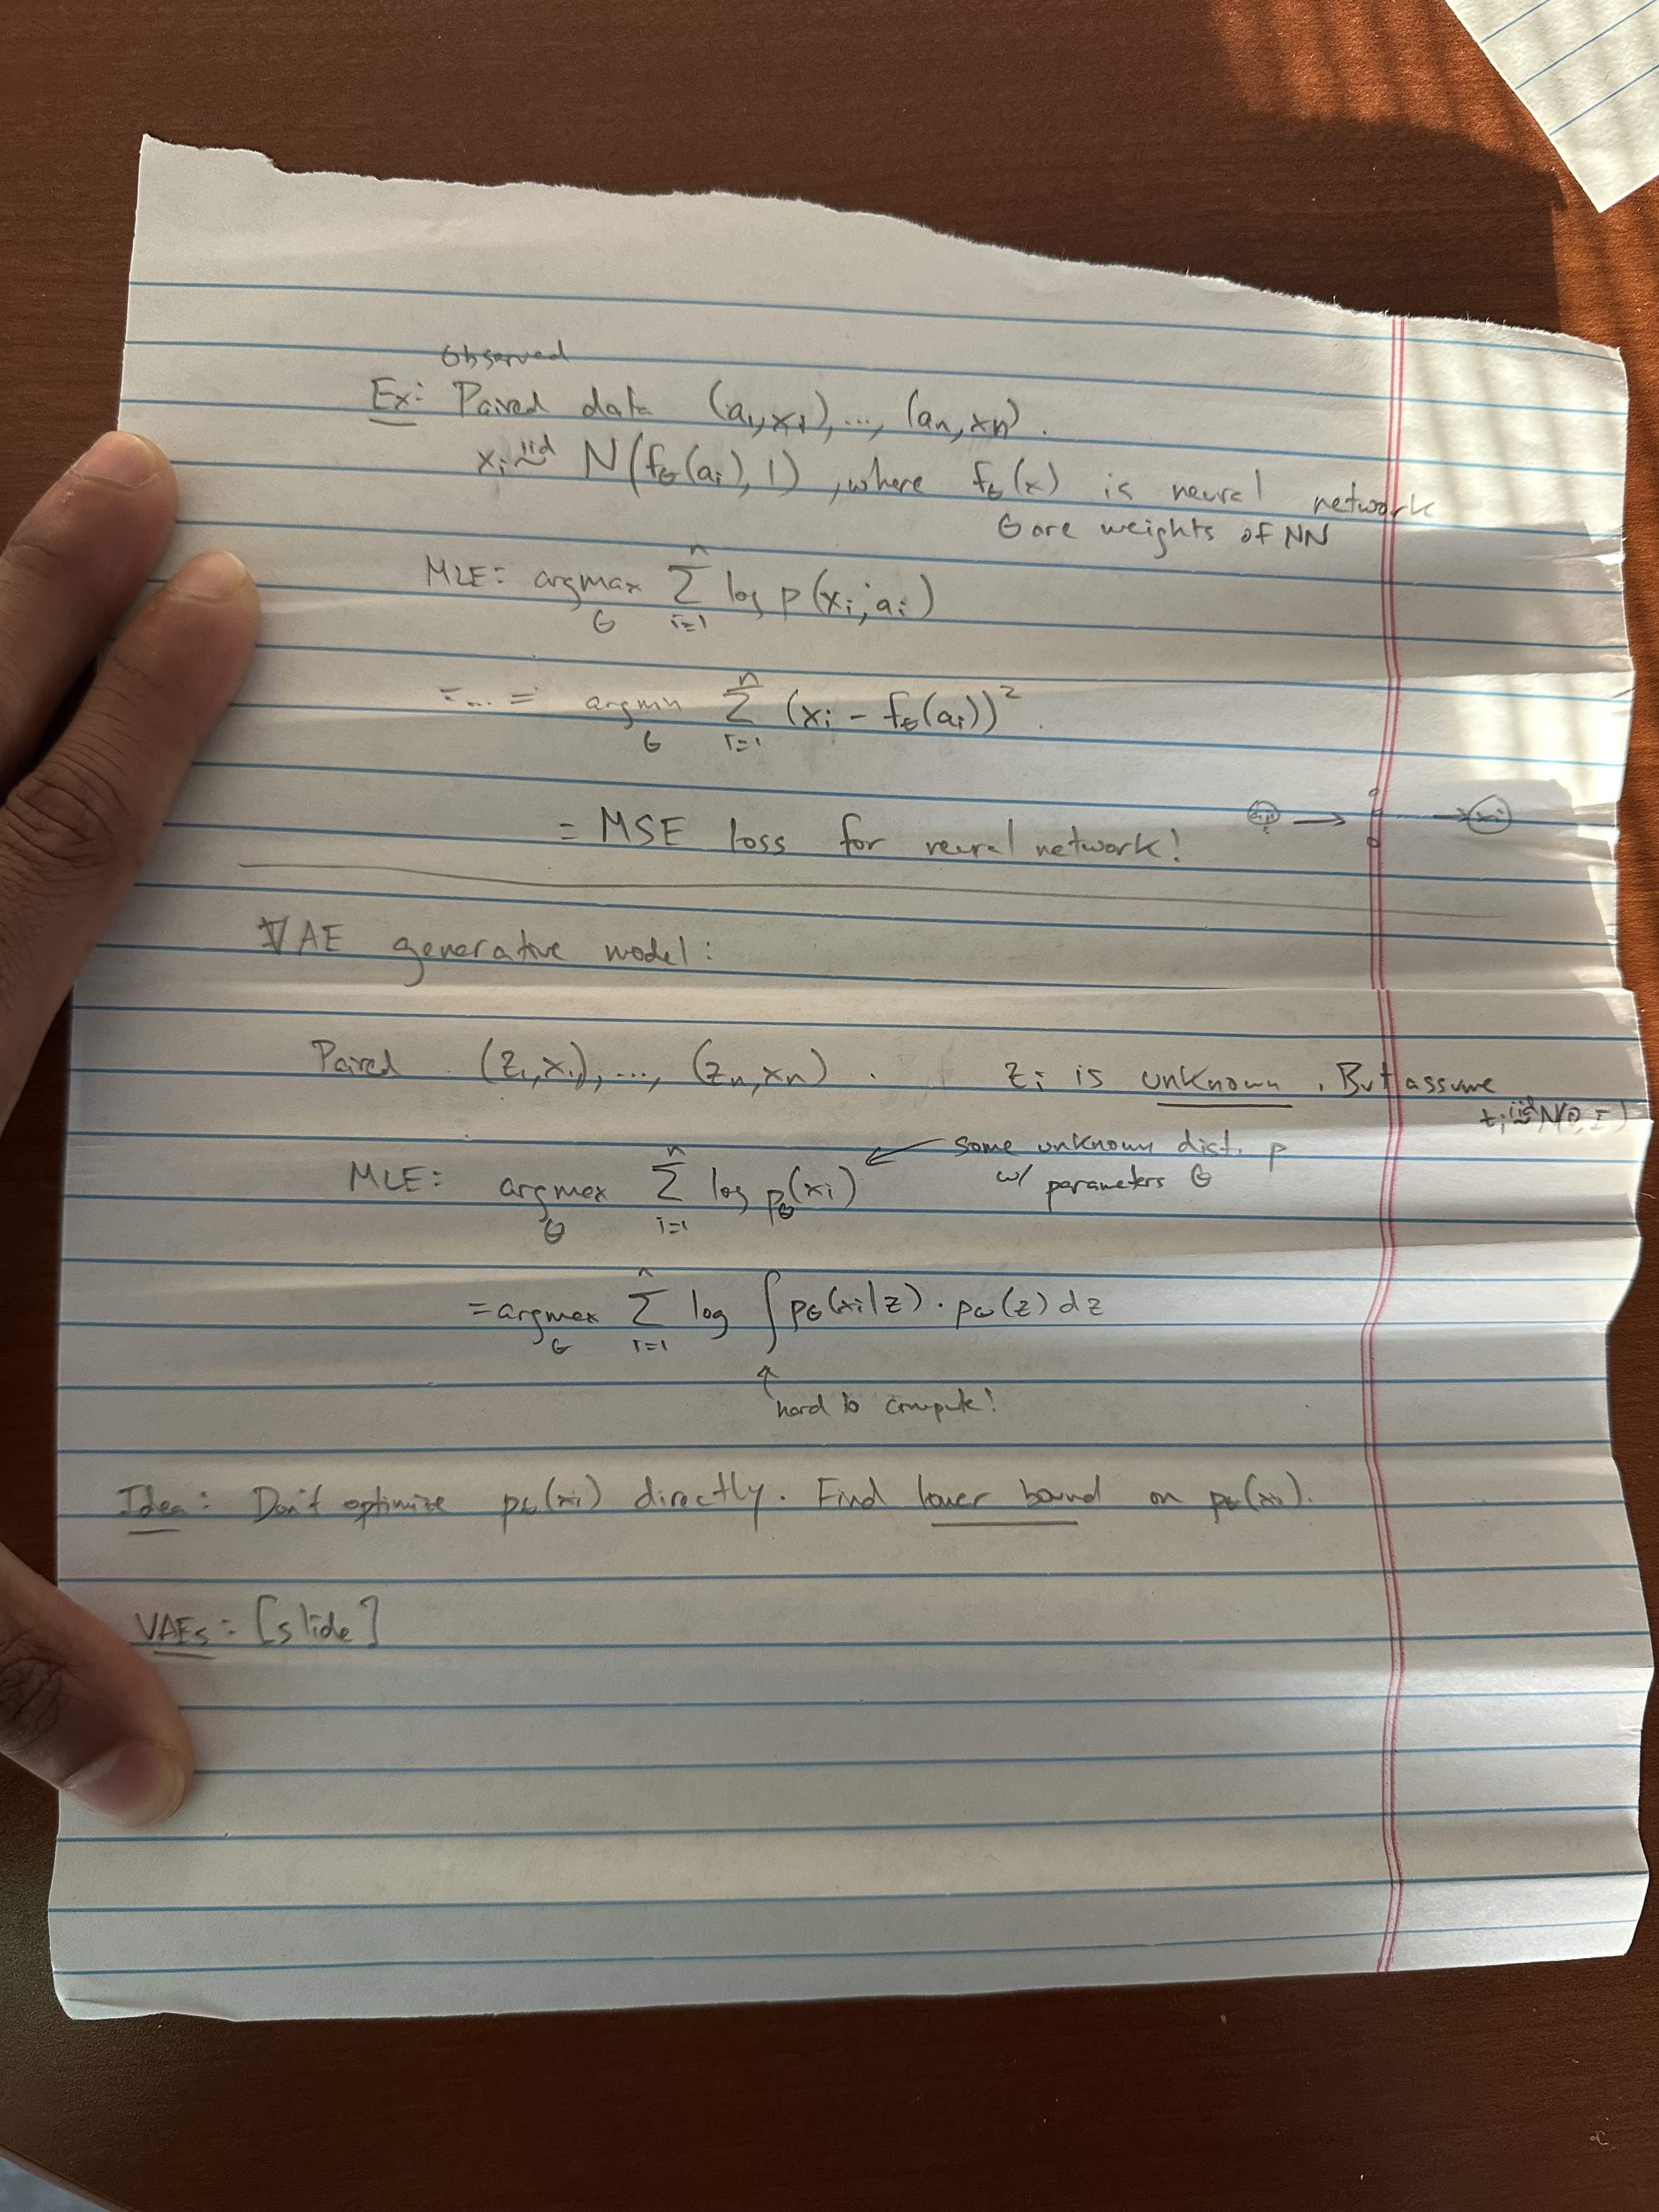 Observed
Ex: Paired data (a₁,x₁),..., (aₙ,xₙ).
xᵢ iid~ N(f_θ(aᵢ), 1), where f_θ(x) is neural network
θ are weights of NN
MLE: argmax_θ Σ_{i=1}^n log p(xᵢ; aᵢ)
=...= argmin_θ Σ_{i=1}^n (xᵢ - f_θ(aᵢ))².
= MSE loss for neural network!
→ → xᵢ
VAE generative model:
Paired (z₁,x₁),..., (zₙ,xₙ). zᵢ is unknown. But assume
zᵢ iid~ N(0, I)
MLE: argmax_θ Σ_{i=1}^n log p_θ(xᵢ) ← some unknown dist. p
w/ parameters θ
= argmax_θ Σ_{i=1}^n log ∫ p_θ(xᵢ|z) · p_θ(z) dz
↑
hard to compute!
Idea: Don't optimize p_θ(xᵢ) directly. Find lower bound on p_θ(xᵢ).
VAEs: [slide]